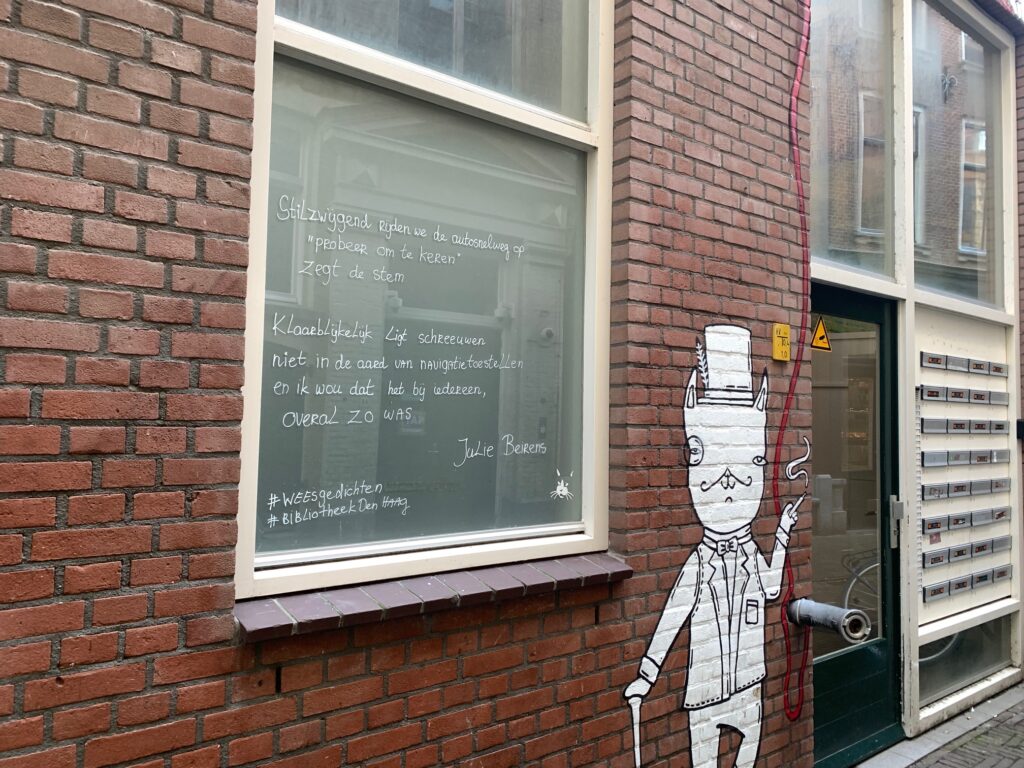 Stilzwijgend rijden we de autosnelweg op
"probeer om te keren"
zegt de stem
Klaarblijkelijk ligt schreeuwen
niet in de aard van navigatietoestellen
en ik wou dat het bij iedereen,
overal zo was
Julie Beirens
#WEESgedichten
#BIBliotheekDen HAAg